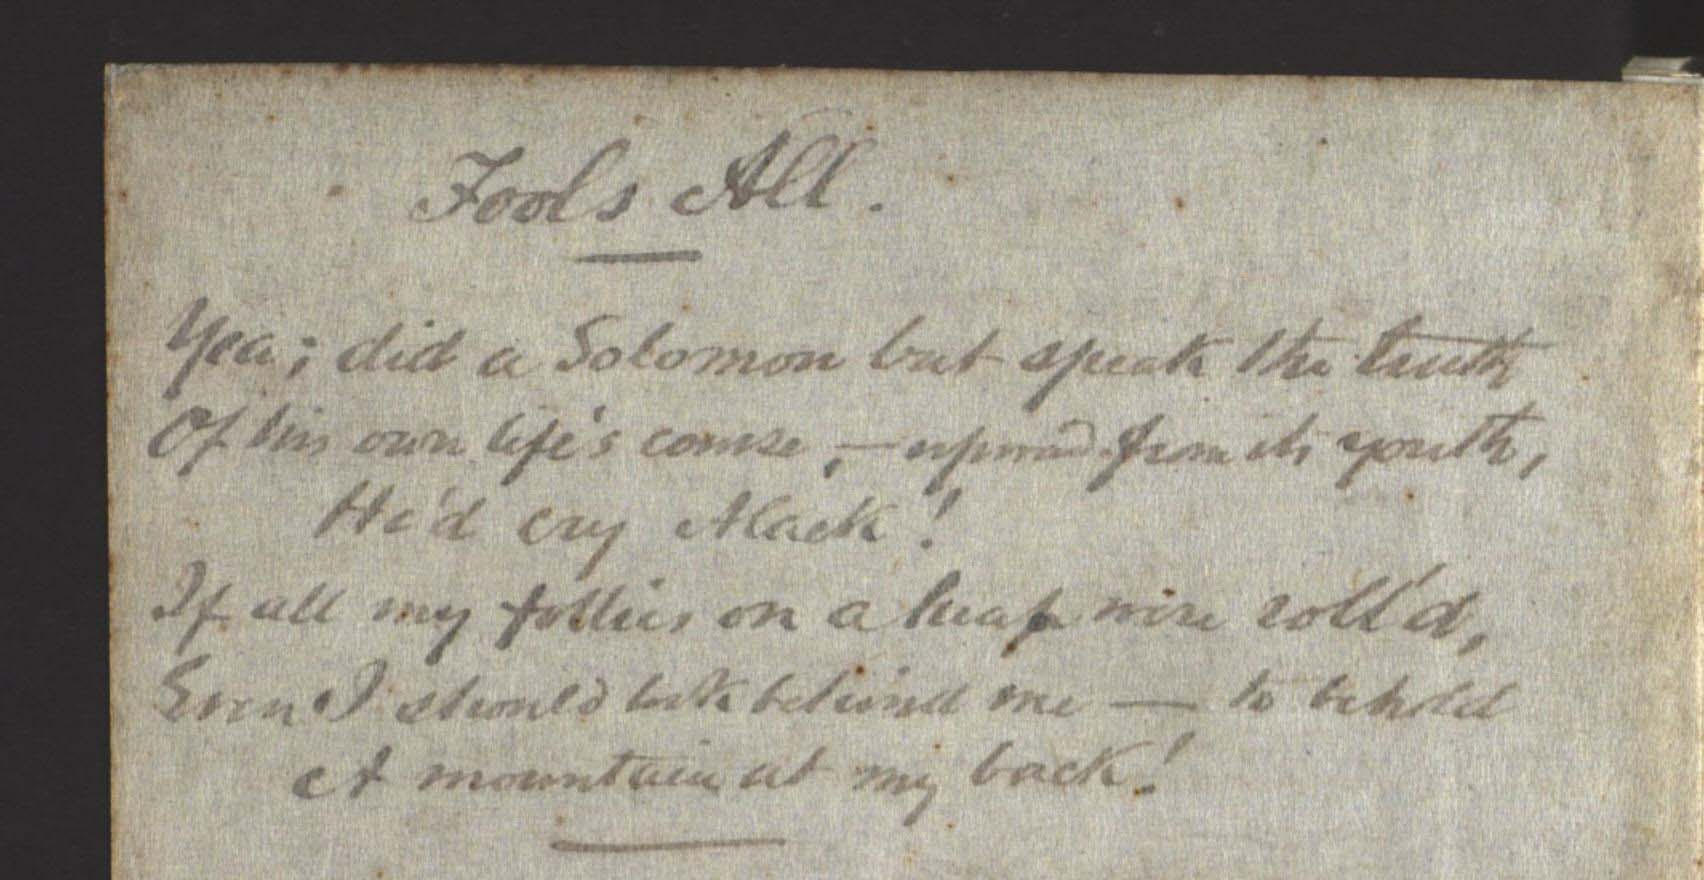 Fools All.
Yea; did a Solomon but speak the truth
Of his own life's course, — upward from its youth,
He'd cry Alack!
If all my follies on a heap were roll'd,
Even I should look behind me — to behold
A mountain at my back!